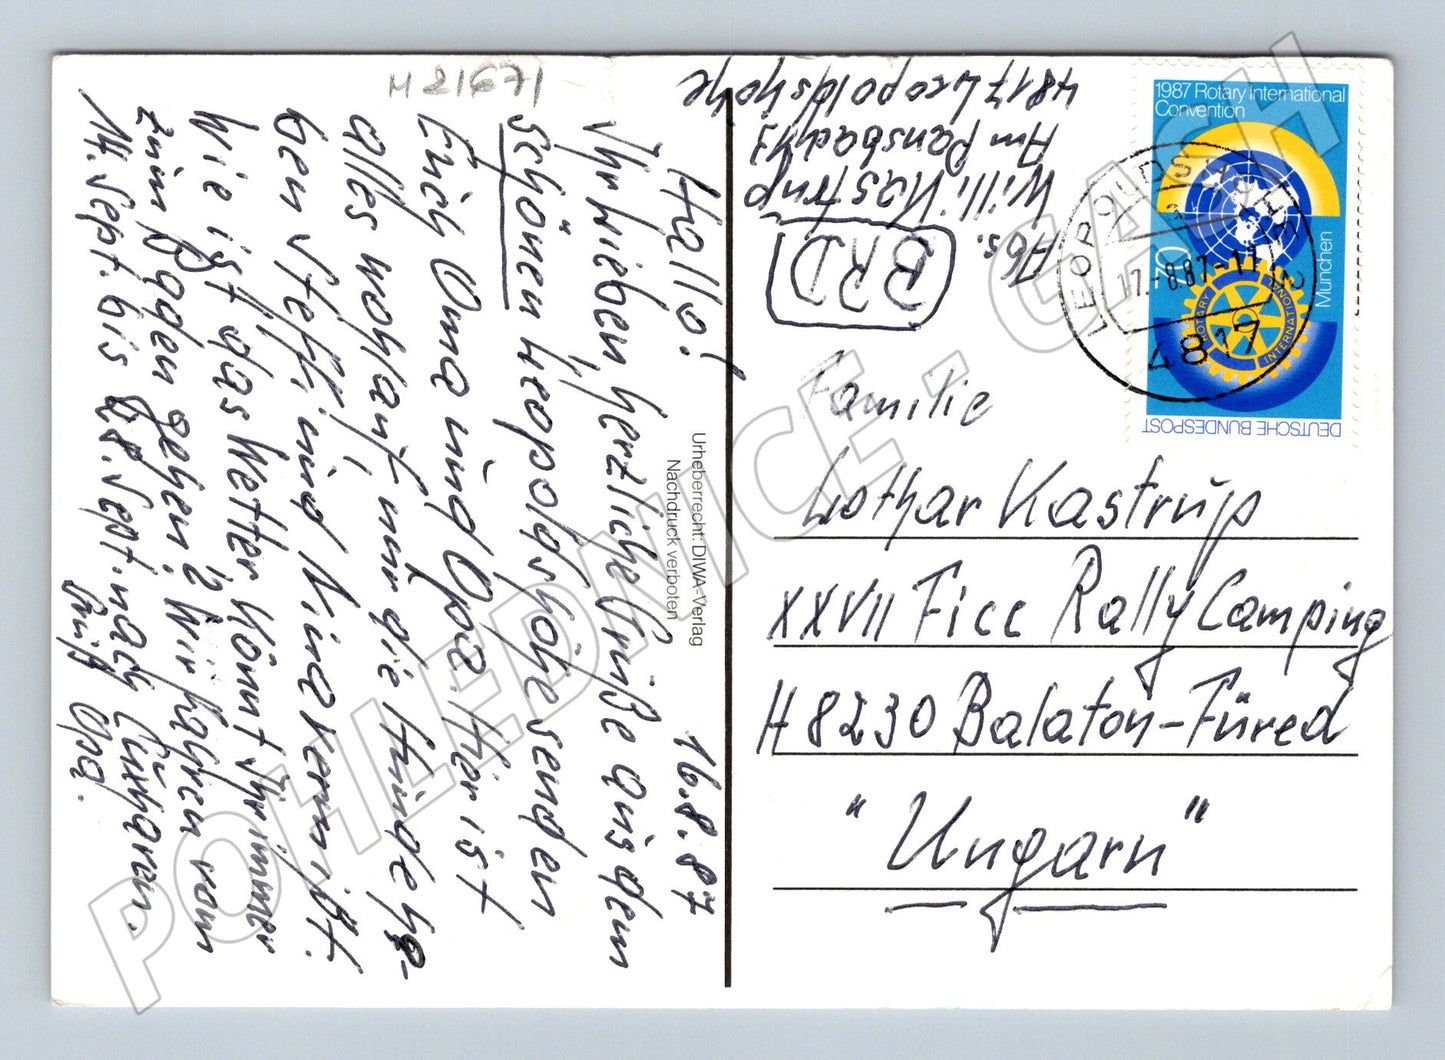 M 21671
Hallo! 16.8.87
Ihr Lieben herzliche Grüße aus dem
schönen Leopoldshöhe senden
Euch Oma und Opa. Hier ist
alles wohlauf, nur die Hunde ha-
ben Steffi und Nina vermißt.
Wie ist das Wetter könnt Ihr immer
zum Baden gehen? Wir fahren vom
14. Sept. bis 28. Sept. nach Cuxhaven.
Opa.
Urheberrecht: DIWA-Verlag
Nachdruck verboten
Abs.
Willi Kastrup
Am Pansbach 13
4817 Leopoldshöhe
BRD
1987 Rotary International
Convention
München
70
ROTARY
INTERNATIONAL
DEUTSCHE BUNDESPOST
LEOPOLDSHÖHE
17.-8.87.-11
4817
Familie
Lothar Kastrup
XXVII Ficc Rally Camping
H 8230 Balaton-Füred
"Ungarn"
POHLEDNICE - GASH